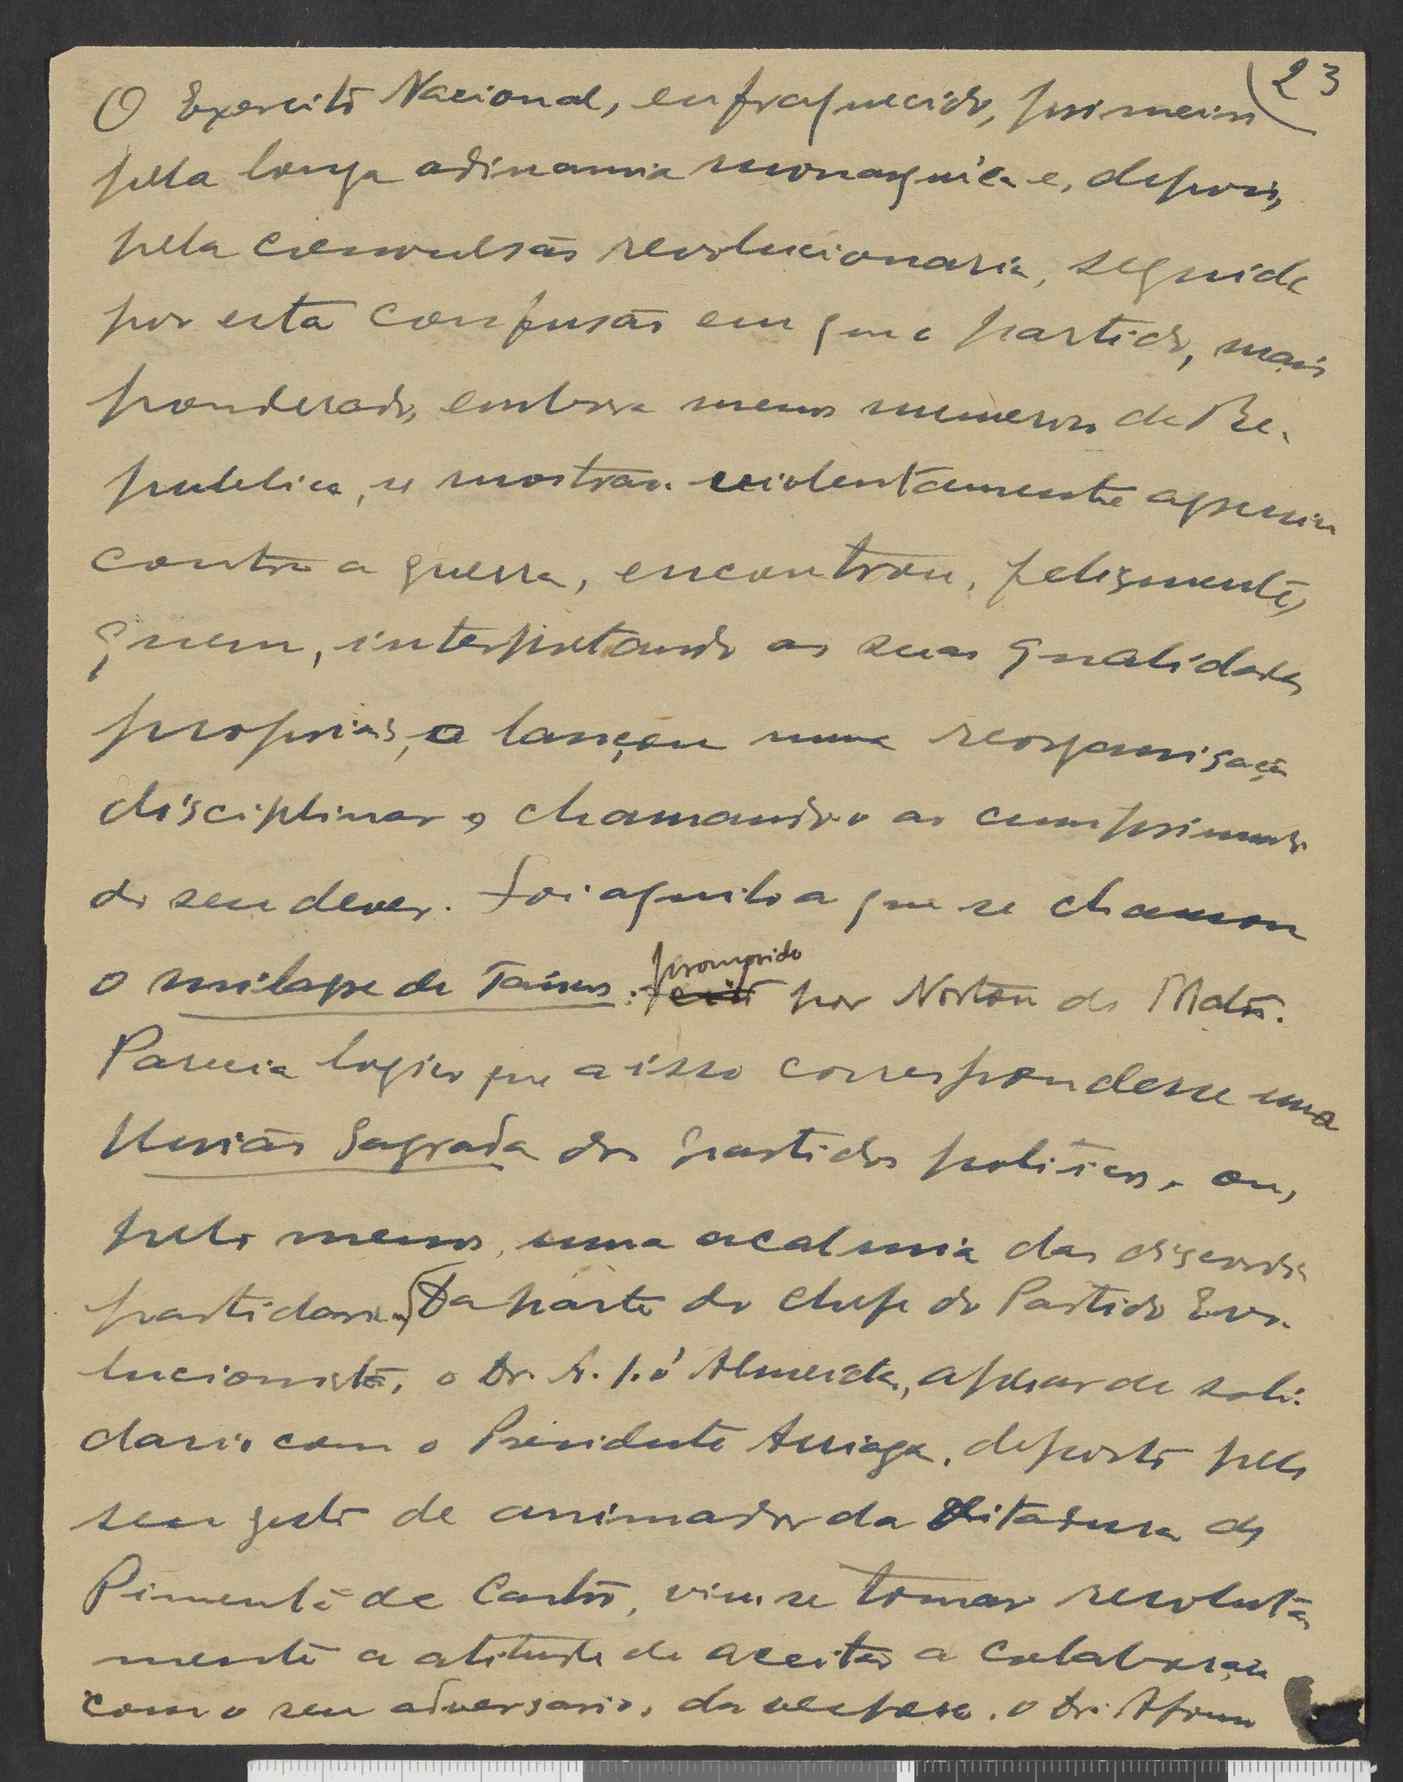 23
O Exercito Nacional, enfraquecido, primeiro
pela longa adinamia monarquica e, depois,
pela convulsão revolucionaria, seguida
por esta confusão em que o partido, mais
ponderado, embora menos numeroso da Re-
publica, se mostrava violentamente
contra a guerra, encontrou, felizmente,
quem, interpretando as suas qualidades
proprias, o lançou numa reorganisação
disciplinar, chamando-o ao cumprimento
do seu dever. Foi aquilo a que se chamou
o milagre de Tancos: promovido por Norton de Matos.
Parecia logico que a isso correspondesse uma
União Sagrada dos partidos politicos, ou,
pelo menos, uma acalmia das discordias
partidarias. Da parte do chefe do Partido Evo-
lucionista, o Dr. A. J. d'Almeida, apesar de soli-
dario com o Presidente Arriaga, deposto pelo
seu gesto de animador da Ditadura de
Pimenta de Castro, viu-se tomar resoluta-
mente a atitude de aceitar a colaboração
com o seu adversario, da vespera, o Dr. Afonso